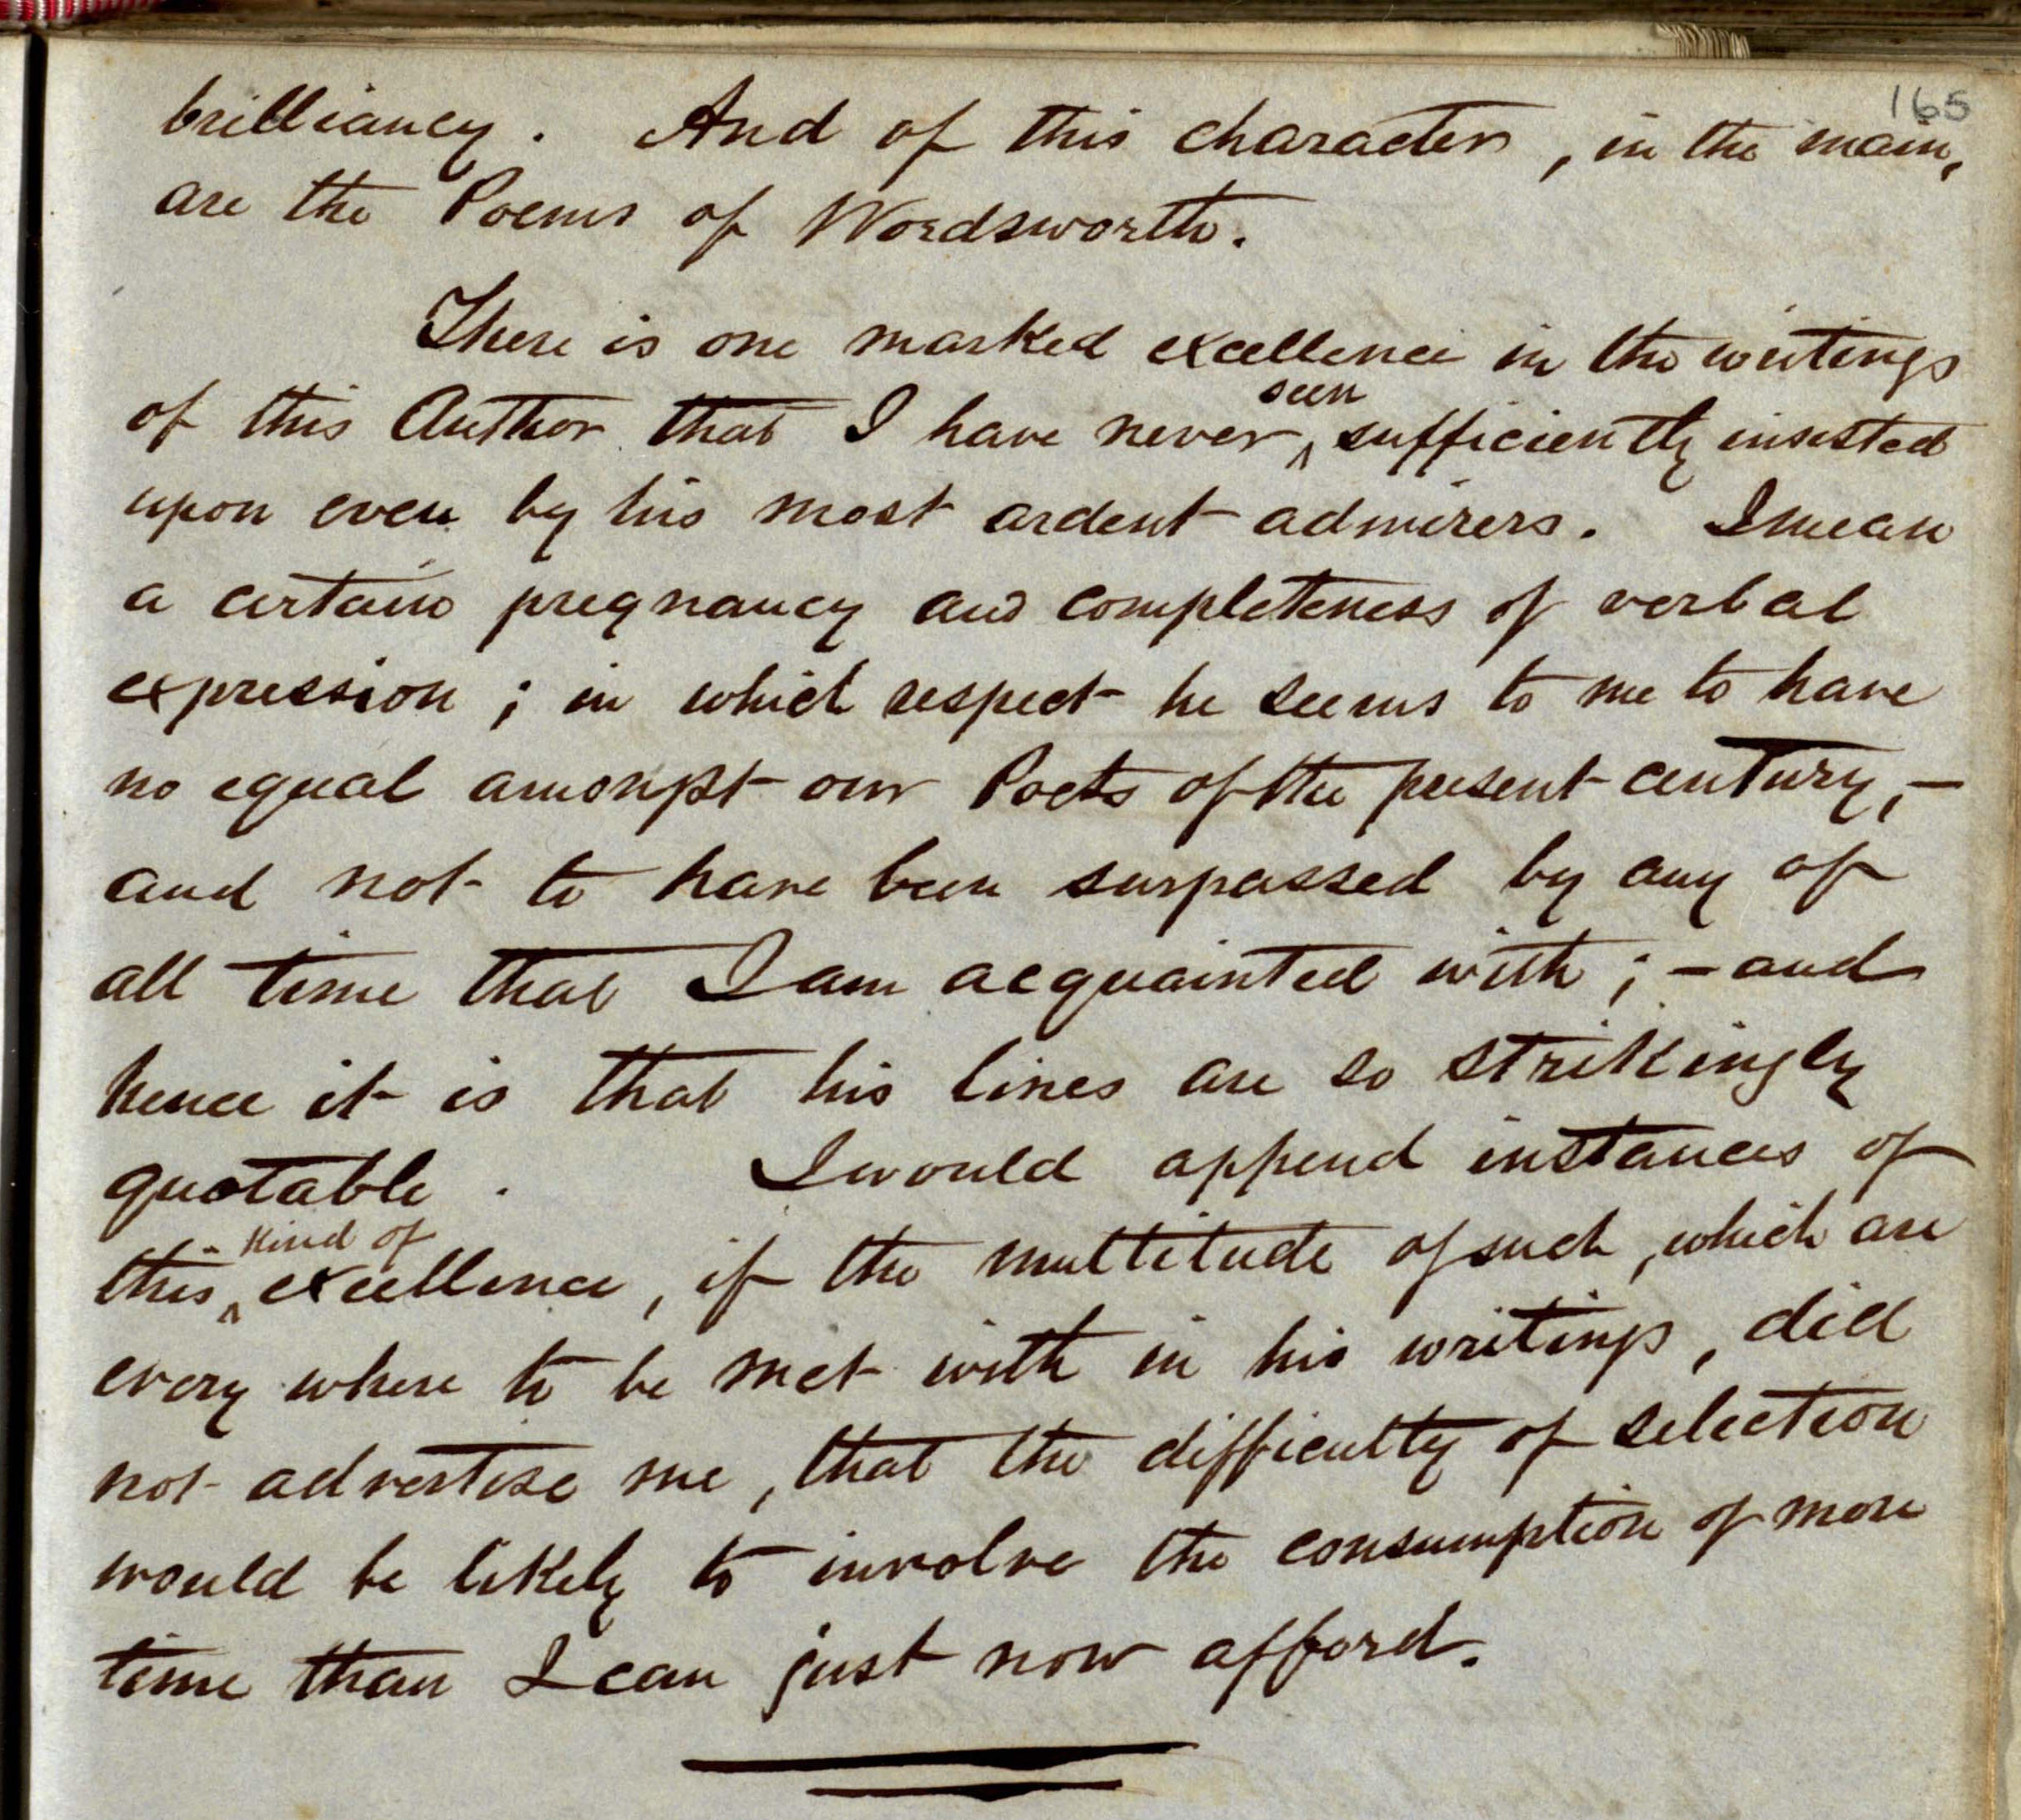 165
brilliancy. And of this character, in the main,
are the Poems of Wordsworth.
There is one marked excellence in the writings
seen
of this Author that I have never ‸ sufficiently insisted
upon even by his most ardent admirers. I mean
a certain pregnancy and completeness of verbal
expression; in which respect he seems to me to have
no equal amongst our Poets of the present century, –
and not to have been surpassed by any of
all time that I am acquainted with; – and
hence it is that his lines are so strikingly
quotable. I would append instances of
kind of
this ‸ excellence, if the multitude of such, which are
every where to be met with in his writings, did
not advertise me, that the difficulty of selection
would be likely to involve the consumption of more
time than I can just now afford.